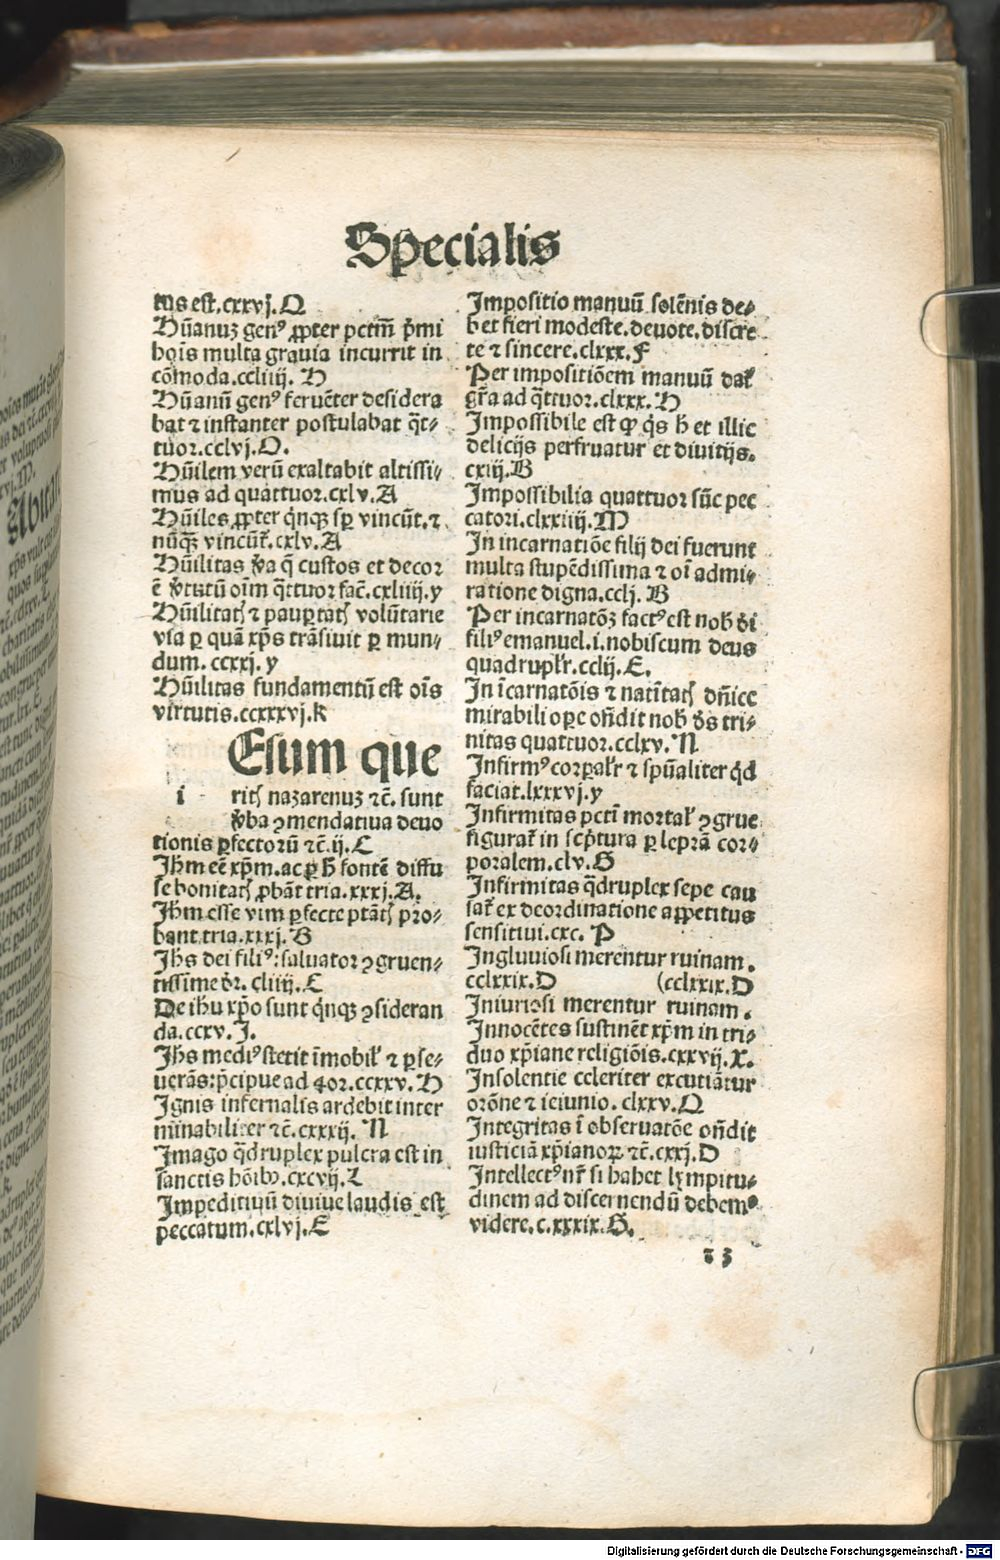 Specialis
tus est.cxxvj.Q
Hūanuꝫ genꝰ ꝓpter pctm̄ p̄mi
hoīs multa grauia incurrit in
cōmoda.ccliiij. H
Hūanū genꝰ feruēter desidera
bat ⁊ instanter postulabat q̄t⸗
tuor.cclvj.O.
Hūilem verū exaltabit altissi⸗
mus ad quattuor.cxlv.A
Hūiles ꝓpter q̇nqꝫ sꝑ vincūt.⁊
nūqꝫ vincūt̄.cxlv.A
Hūilitas v̄a q̄ custos et decor
ē v̄tutū oīm q̄ttuor fac̄.cxliiij.y
Hūilitatꝭ ⁊ pauꝑtatꝭ volūtarie
vsa ꝑ quā xp̄s trāsiuit ꝑ mun⸗
dum. ccxxj. y
Hūilitas fundamentū est oīs
virtutis.ccxxxvj.K
Esum que
i ritꝭ nazarenuꝫ ⁊c̄. sunt
v̄ba ꝯmendatiua deuo
tionis ꝑfectorū ⁊c̄.ij.C
Jhm eē xp̄m.ac ꝑ h̄ fontē diffu
se bonitatꝭ ꝓbāt tria.xxxj.A.
Jhm esse vim ꝑfecte ptātꝭ pro⸗
bant tria.xxxj.B
Jhs dei filiꝰ:saluator ꝯgruen⸗
tissime dr̄. cliiij.C
De ihu xp̄o sunt q̇nqꝫ ꝯsideran
da.ccxv.J.
Jhs mediꝰ stetit īmobil̓ ⁊ ꝑse⸗
uerās:p̄cipue ad 4or.ccxxv.H
Ignis infernalis ardebit inter
minabiliter ⁊c̄.cxxxij. N
Imago q̄druplex pulcra est in
sanctis hōibꝰ.cxcvij.L
Impeditiuū diuiue laudis est
peccatum.cxlvj.E
Impositio manuū solēnis de⸗
bet fieri modeste.deuote.discre
te ⁊ sincere.clxxx.F
Per impositiōem manuū dat̄
gr̄a ad q̄ttuor.clxxx.H
Impossibile est ꝙ q̇s h̄ et illic
delicijs perfruatur et diuitijs.
cxiij.B
Impossibilia quattuor sūt pec
catori.clxxiiij.M
In incarnatiōe filij dei fuerunt
multa stupēdissima ⁊ oī admi⸗
ratione digna.cclj. B
Per incarnatōꝫ factꝰ est nob̄ di
filiꝰ emanuel.i.nobiscum deus
quadruplr̄.cclij.E.
In īcarnatōis ⁊ natītatꝭ dn̄ice
mirabili oꝑe oñdit nob̄ ds̄ tri⸗
nitas quattuor.cclxv.N
Infirmꝰ corꝑalr̄ ⁊ spūaliter q̇d
faciat.lxxxvj.y
Infirmitas pcti mortal̓ ꝯgrue
figurat̄ in sc̄ptura ꝑ leprā cor⸗
poralem.clv.G
Infirmitas q̄druplex sepe cau
sat̄ ex deordinatione appetitus
sensitiui.cxc. P
Ingluuiosi merentur ruinam.
cclxxix.D (cclxxix.D
Iniuriosi merentur ruinam.
Innocētes sustinēt xp̄m in tri⸗
duo xp̄iane religiōis.cxxvij.X.
Insolentie celeriter excutiātur
orōne ⁊ ieiunio. clxxv.Q
Integritas ī obseruatōe oñdit
iusticiā xp̄ianoꝝ ⁊c̄.cxxj.D
Intellectꝰ nr̄ si habet lympitu⸗
dinem ad discernendū debemꝰ
videre.c.xxxix.G.
z 3
Digitalisierung gefördert durch die Deutsche Forschungsgemeinschaft - DFG